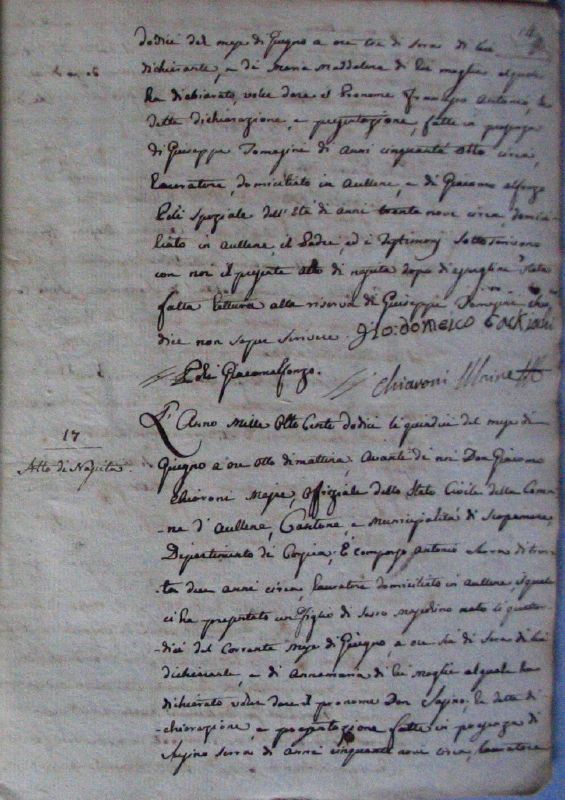 dodici del mese di Giugno a ore tre di sera di lui
dichiarante, e di Maria Maddalena di lui moglie al quale
ha dichiarato, voler dare il Pronome Francesco Antonio, le
dette dichiarazione, e presentazione, fatte in presenza
di Giuseppe Tomasine di anni cinquanta otto circa,
Lavoratore, domiciliato in Aullene, e di Giacomo alfonzo
Poli speziale dell'età di anni trenta nove circa domici-
liato in aullene, il Padre, ed i Testimonj sottoscrivono
con noi il presente atto di nascita dopo di essergliene stata
fatta lettura alla riserva di Giuseppe
dice non saper scrivere. Gio: domenico
Poli Giacomalfonzo. chiaroni Maire
L'Anno Mille Otto Cento dodici li quindici del mese di
17
Atto di Nascita.
Giugno a ore otto di mattina, Avante di noi Don Giacomo
chiaroni Maire, Offiziale dello Stato Civile della Comu-
ne d'Aullene, Cantone, e Municipalità di Scopamene,
Dipartimento di Corsica, È comparso Antonio Serra di tren-
ta due anni circa, lavoratore domiciliato in aullene, il quale
ci ha presentato un figlio di sesso mascolino nato li quator-
dici del Corrante Mese di Giugno, a ore sei di sera di lui
dichiarante, e di Annamaria di lui Moglie al quale ha
dichiarato voler dare il pronome Don Sapino, le dette di-
-chiarazione, e presentazione fatte in presenza di
Sapino Serra di Anni cinquanta nove circa, lavoratore